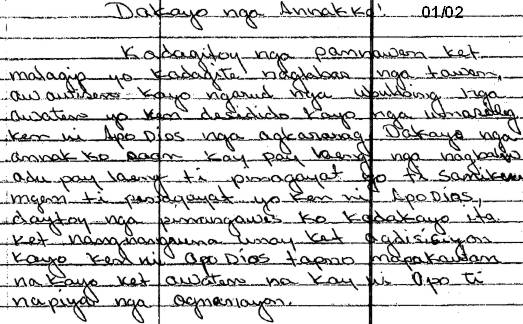 Dakayo nga Annakko! 01/02
Kadagitoy nga panawen ket
malagip yo kadagiti naglabas nga tawen,
kayo ngarud nga ubbing nga
awaten yo ken desidido kayo nga umasideg
ken ni Apo Dios nga agkararag. Dakayo nga
annak ko saan kay pay laeng nga
adu pay laeng ti panagayat yo ti
ngem ti panagayat yo ken ni Apo Dios,
daytoy nga ko kadakayo ita
ket unay ket agdisisiyon
kayo ken ni Apo Dios tapno mapakawan
na kayo ket awaten na kay ni Apo ti
napiya nga